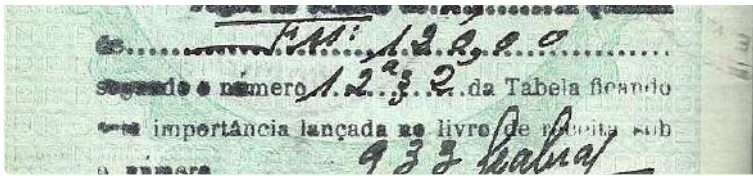 de........ FM: 120,00........
segundo o número 12ª32 da Tabela ficando
esta importância lançada no livro de receita sob
o número 933 Cabral